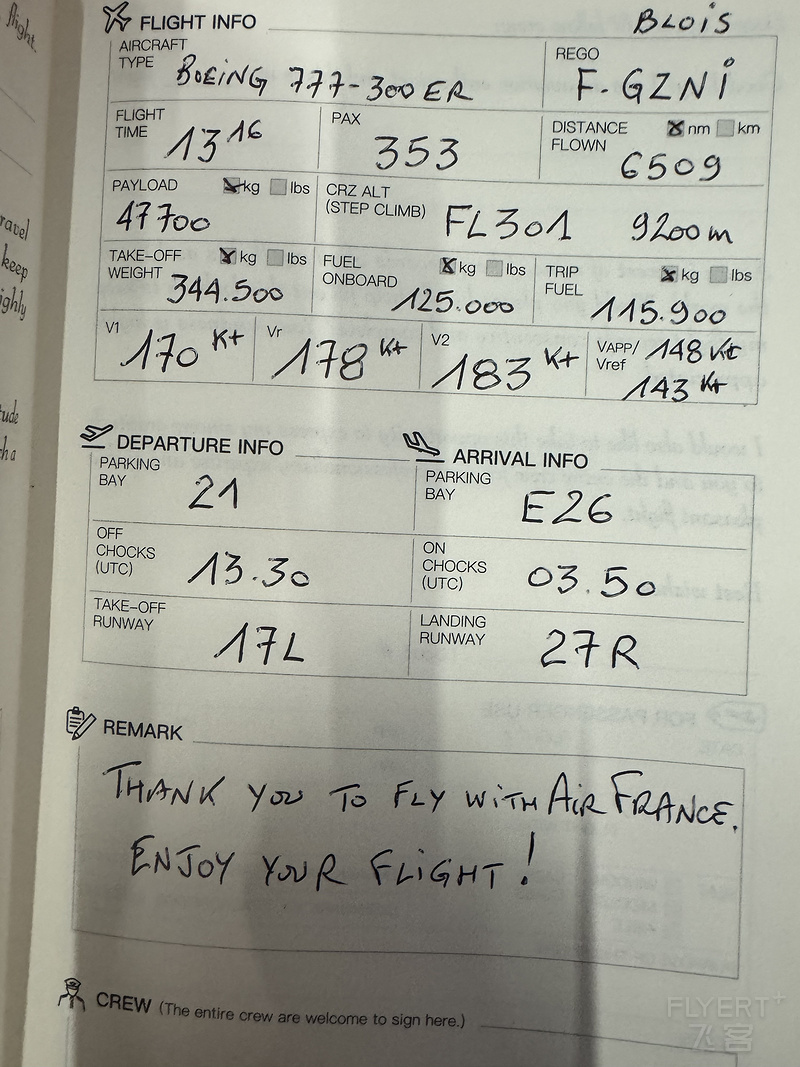 flight.
BLOIS
FLIGHT INFO
AIRCRAFT TYPE BOEING 777-300 ER
REGO F-GZNI
FLIGHT TIME 13 16
PAX 353
DISTANCE FLOWN nm km 6509
PAYLOAD kg lbs 47700
CRZ ALT (STEP CLIMB) FL301 9200m
TAKE-OFF WEIGHT kg lbs 344.500
FUEL ONBOARD kg lbs 125.000
TRIP FUEL kg lbs 115.900
V1 170 Kt
Vr 178 Kt
V2 183 Kt
VAPP/ Vref 148 Kt 143 Kt
DEPARTURE INFO
ARRIVAL INFO
PARKING BAY 21
PARKING BAY E26
OFF CHOCKS (UTC) 13.30
ON CHOCKS (UTC) 03.50
TAKE-OFF RUNWAY 17L
LANDING RUNWAY 27R
REMARK
THANK YOU TO FLY WITH AIR FRANCE.
ENJOY YOUR FLIGHT!
CREW (The entire crew are welcome to sign here.)
FLYERT+
飞客